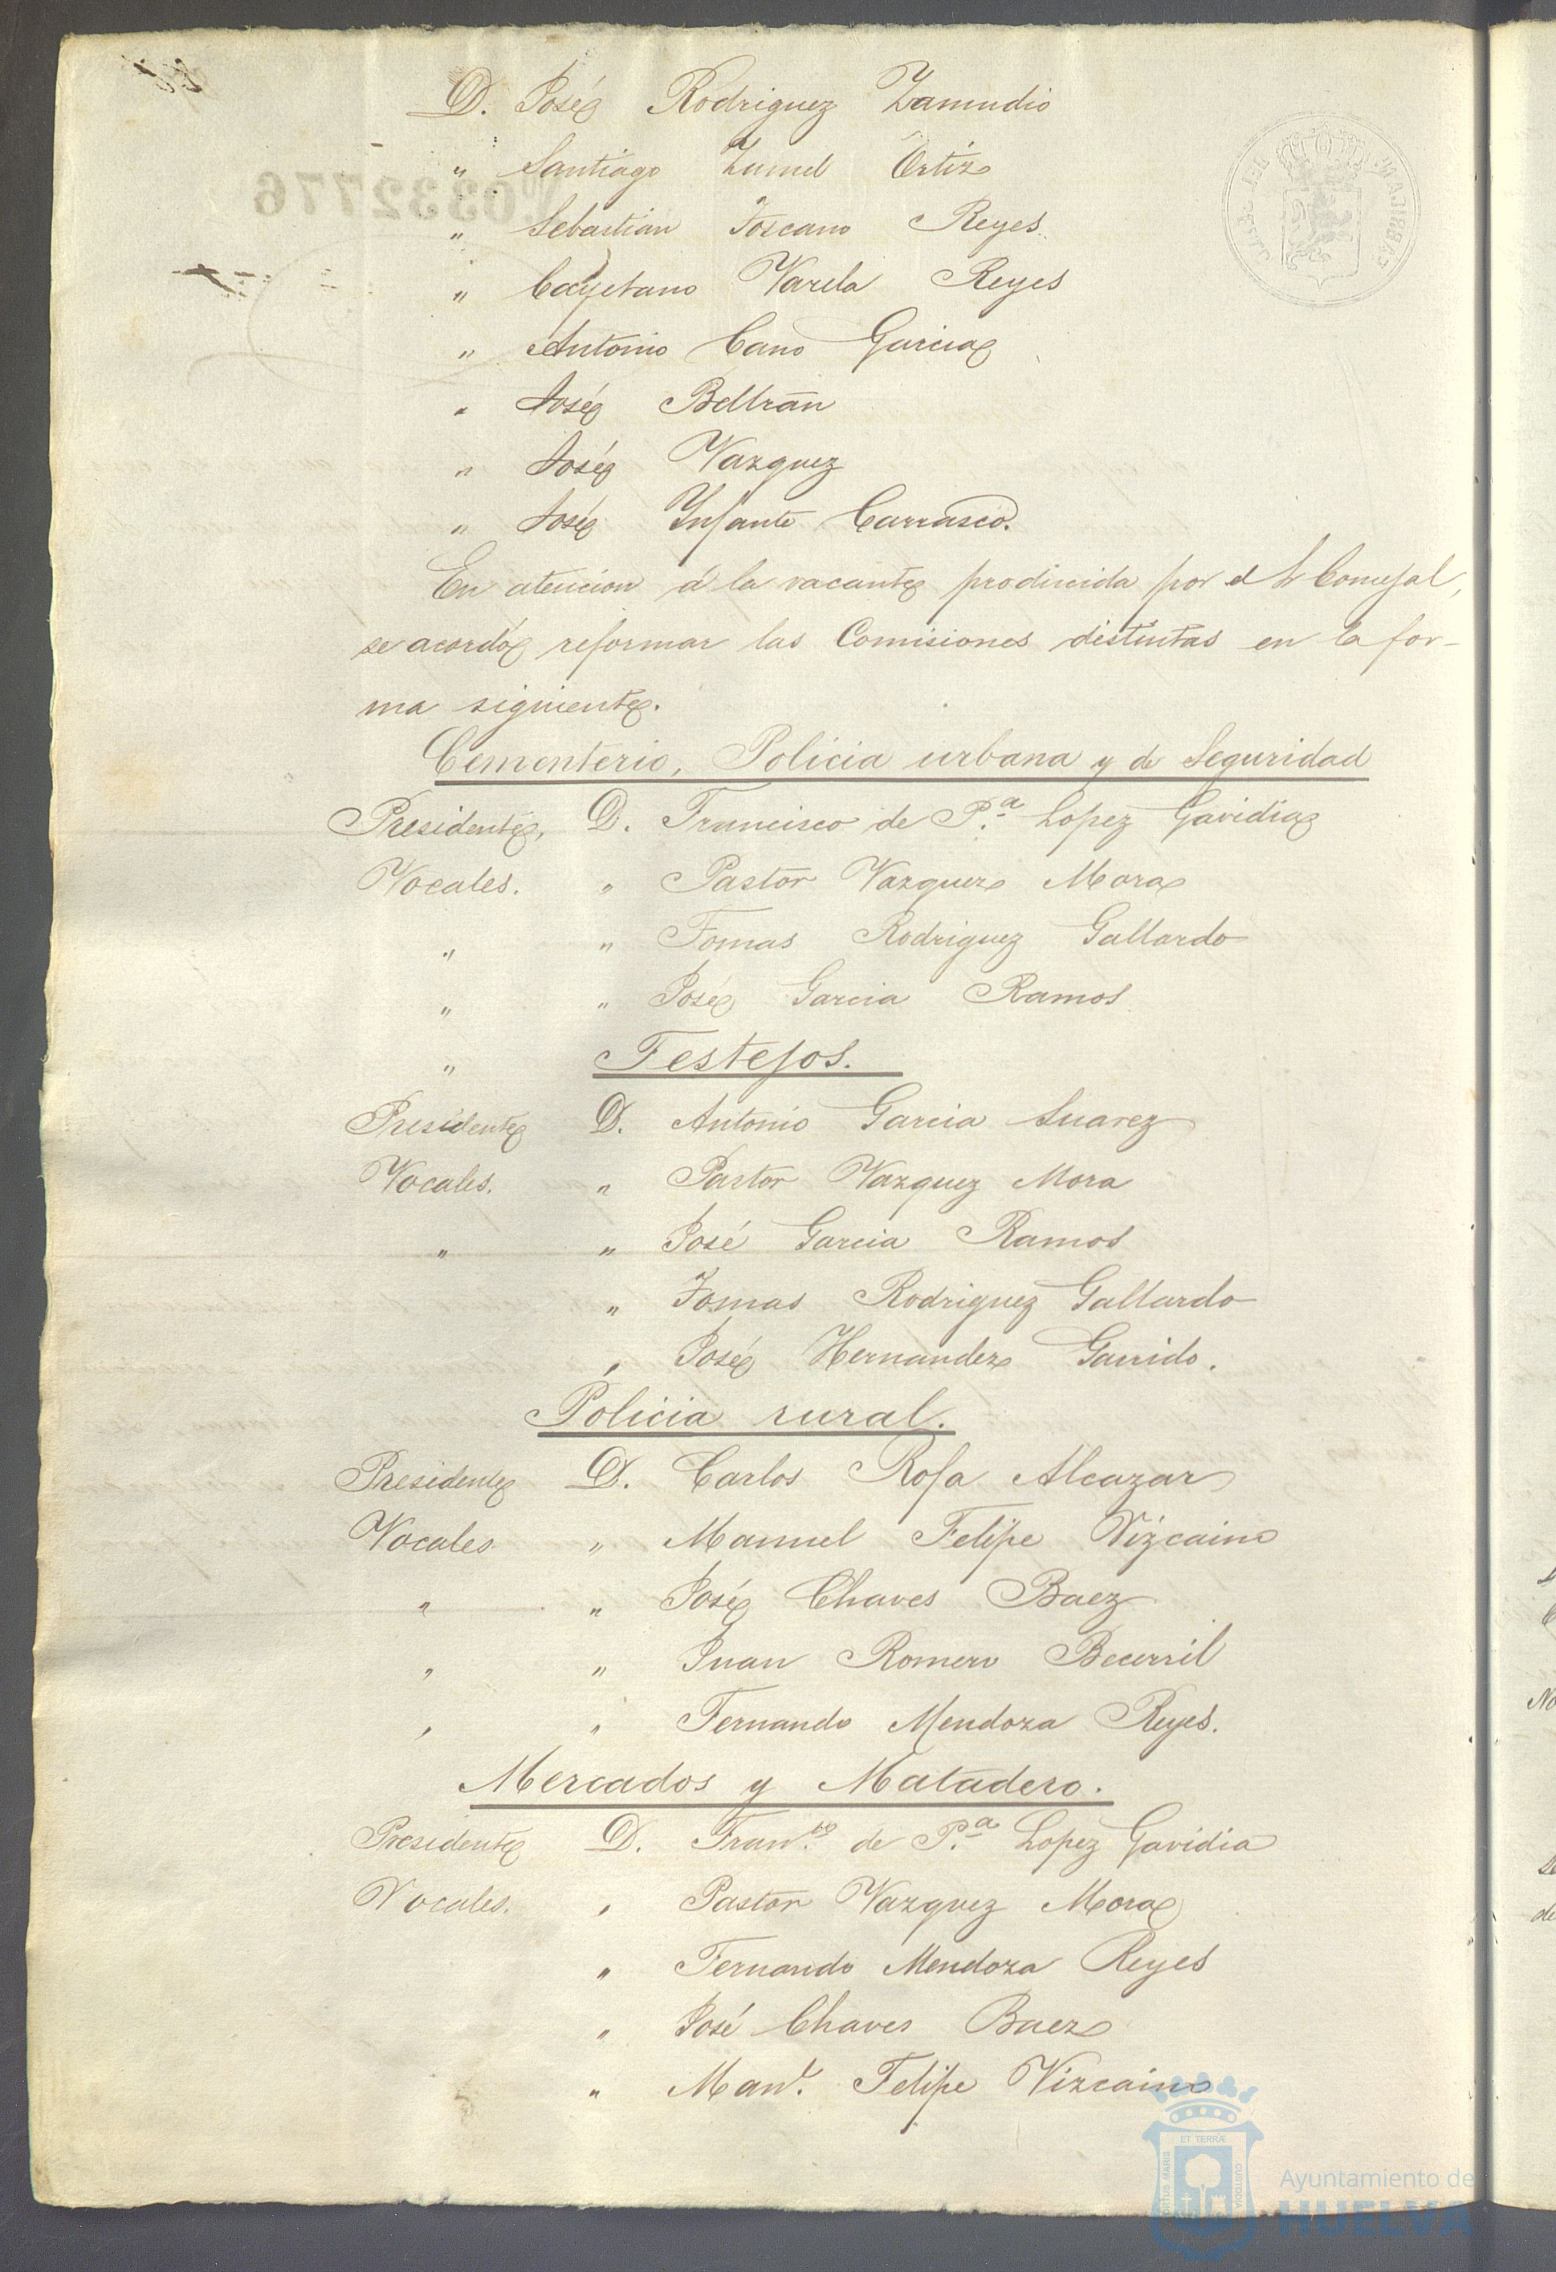 D. José Rodriguez Zamudio
" Santiago Zumel Ortiz
" Sebastian Toscano Reyes.
" Cayetano Varela Reyes
" Antonio Cano Garcia
" José Beltrán
" José Vazquez
" José Ynfante Carrasco.
En atencion á la vacante producida por el Sr Concejal,
se acordó reformar las Comisiones distintas en la for-
ma siguiente.
Cementerio, Policia urbana y de Seguridad
Presidente, D. Francisco de P.ª Lopez Gavidia
Vocales. " Pastor Vazquez Mora
" " Tomas Rodriguez Gallardo
" " José Garcia Ramos
" Festejos.
Presidente D. Antonio Garcia Suarez
Vocales. " Pastor Vazquez Mora
" " José Garcia Ramos
" Tomas Rodriguez Gallardo
" José Hernandez Garrido.
Policia rural.
Presidente D. Carlos Rofa Alcazar
Vocales " Manuel Felipe Vizcaino
" " José Chaves Baez
" " Juan Romero Becerril
" " Fernando Mendoza Reyes.
Mercados y Matadero.
Presidente D. Fran.co de P.ª Lopez Gavidia
Vocales. " Pastor Vazquez Mora
" Fernando Mendoza Reyes
" José Chaves Baez
" Man.l Felipe Vizcaino
ET TERRÆ
PORTUS MARIS
CUSTODIA
Ayuntamiento de
HUELVA